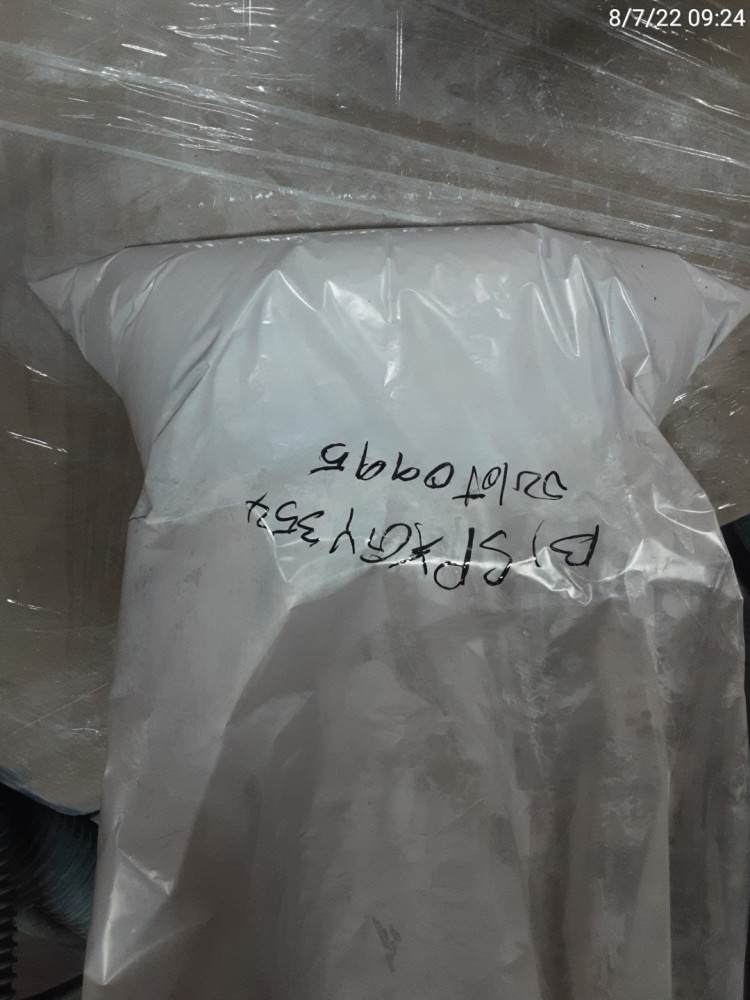 8/7/22 09:24
B) SPXGY352
22lot0995